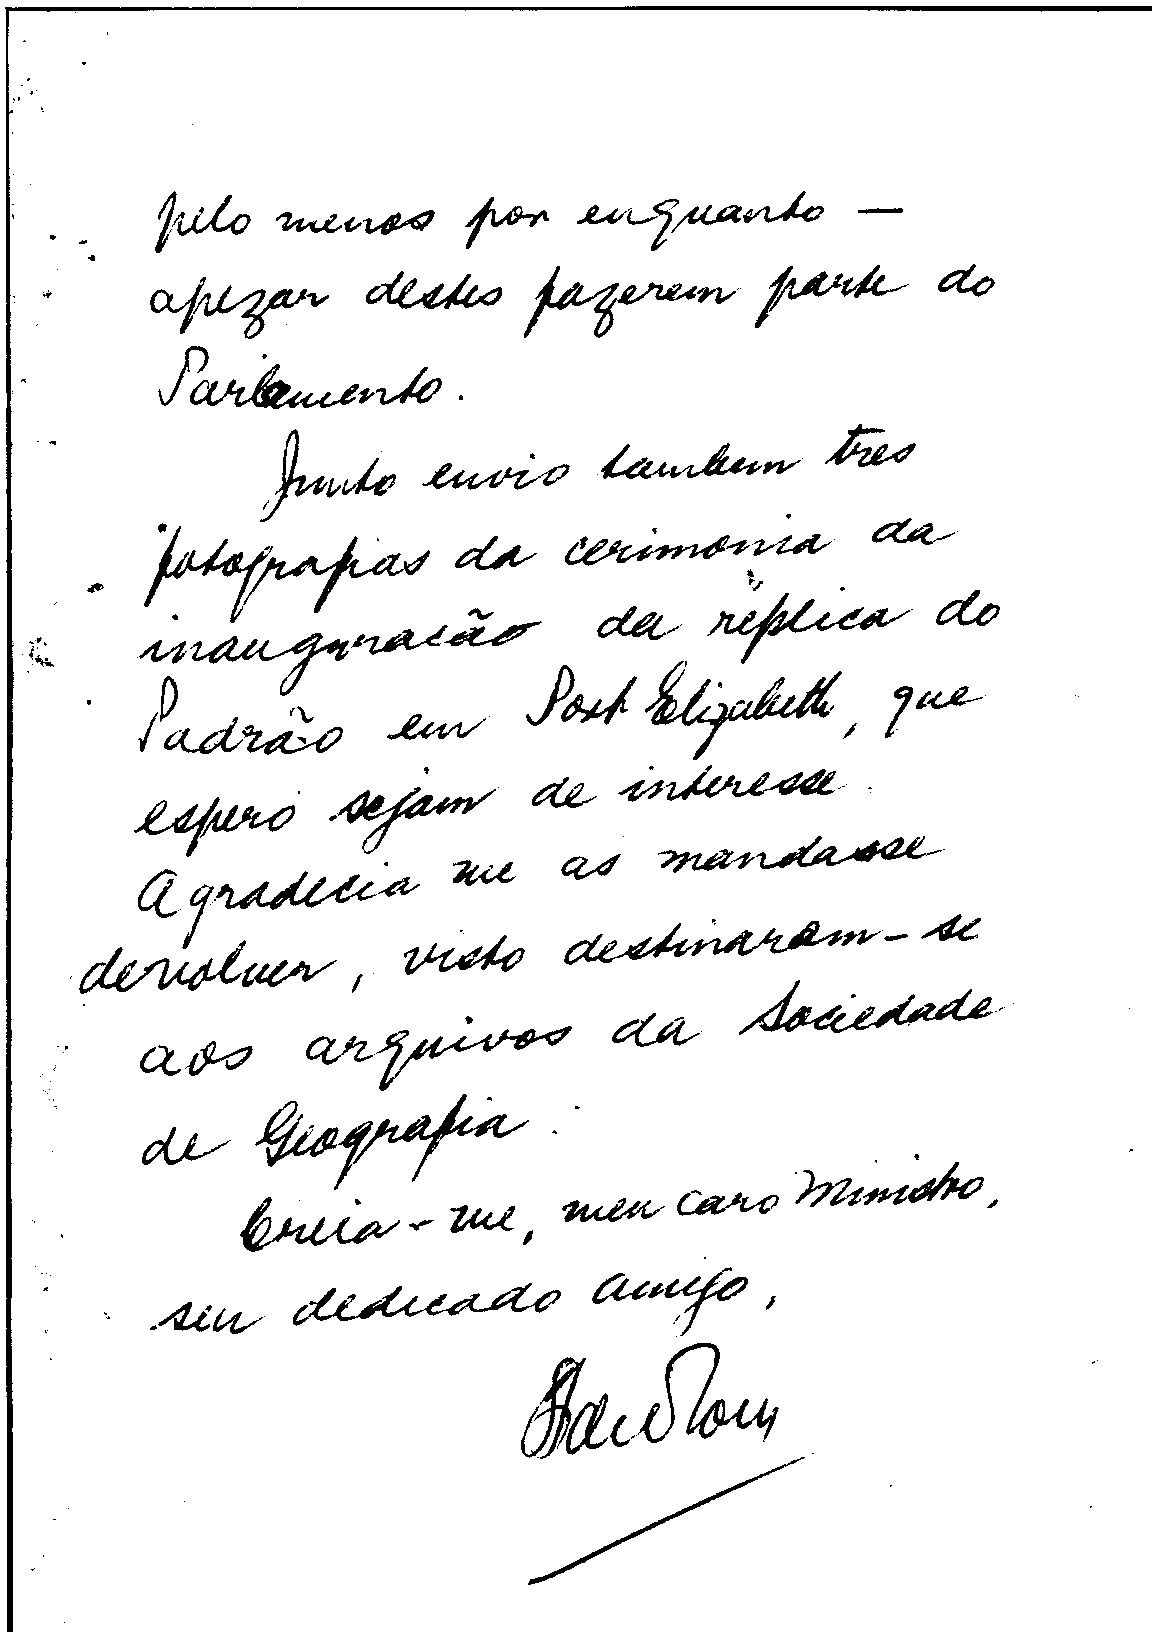 pelo menos por enquanto —
apezar destes fazerem parte do
Parlamento.
Junto envio tambem tres
fotografias da cerimonia da
inauguracão da réplica do
Padrão em Port Elizabeth, que
espero sejam de interesse.
Agradecia me as mandasse
devolver, visto destinarem-se
aos arquivos da Sociedade
de Geografia.
Creia-me, meu caro Ministro,
seu dedicado amigo,